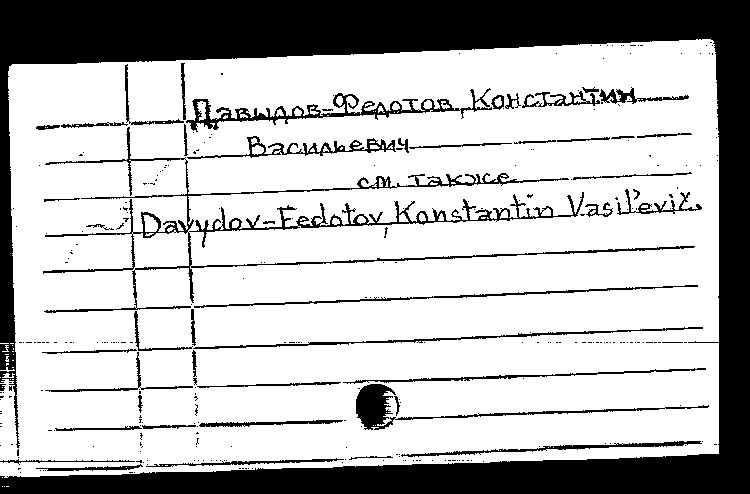 Давыдов-Федотов, Константин
Васильевич
см. также
Davydov-Fedotov, Konstantin Vasil'evič.